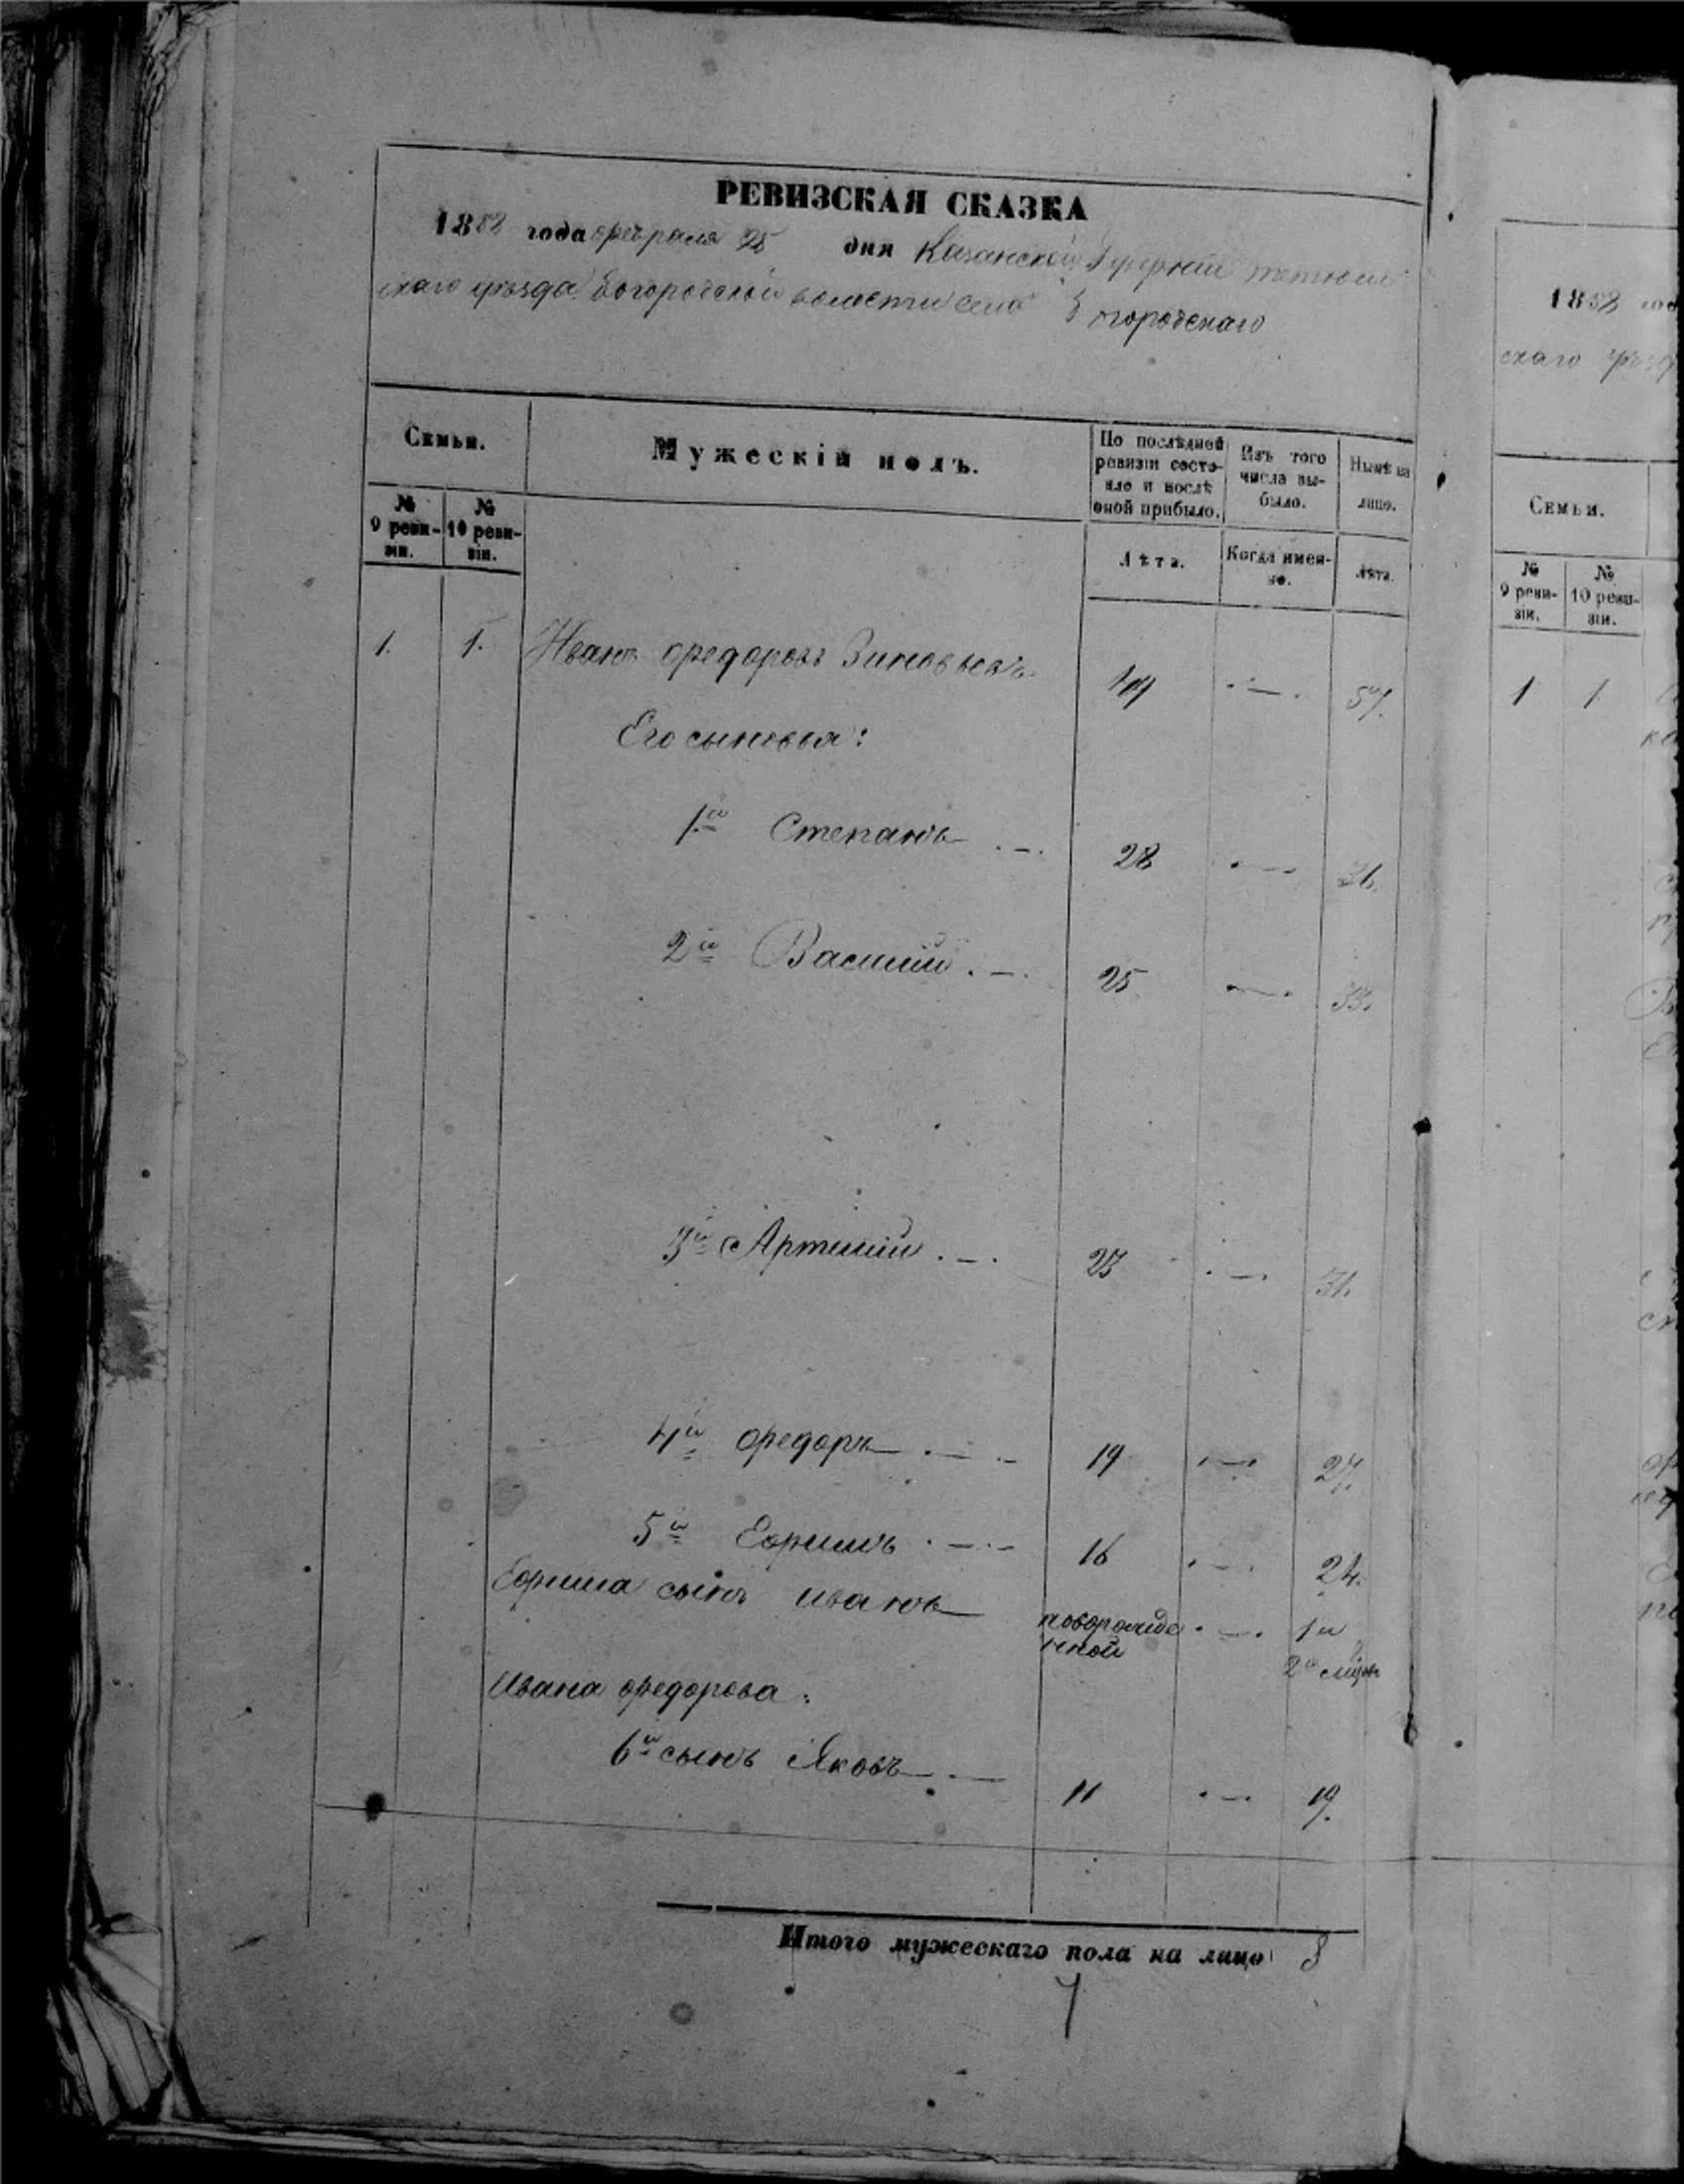 РЕВИЗСКАЯ СКАЗКА
1858 года февраля 25 дня Казанской Губернiи тетюш
скаго уѣзда Богородской волости села Богородскаго
Семьи.
Мужескiй полъ.
По послѣдней ревизiи состо-яло и послѣ оной прибыло.
Изъ того числа вы-было.
Нынѣ на лицо.
№ 9 реви-зiи.
№ 10 реви-зiи.
Лѣта.
Когда имен-но.
Лѣта.
1. 1. Иванъ Федоровъ Зиновьевъ 49 . — . 57.
Его сыновья:
1й Степанъ . — . 28 . — 36.
2й Василий . — . 25 . — . 33.
3й Артемий . — . 23 . — . 31.
4й Федоръ . — . — 19 . — . 27.
5й Ефимъ . — . — 16 . — . 24.
Ефима сынъ Иванъ новорожде . — . 1й
нной 2й
Ивана Федорова:
6й сынъ Яковъ . — 11 . — . 19.
Итого мужескаго пола на лицо 8
7
1858 год
скаго уѣзд
Семьи.
№ 9 реви-зiи.
№ 10 реви-зiи.
1 1